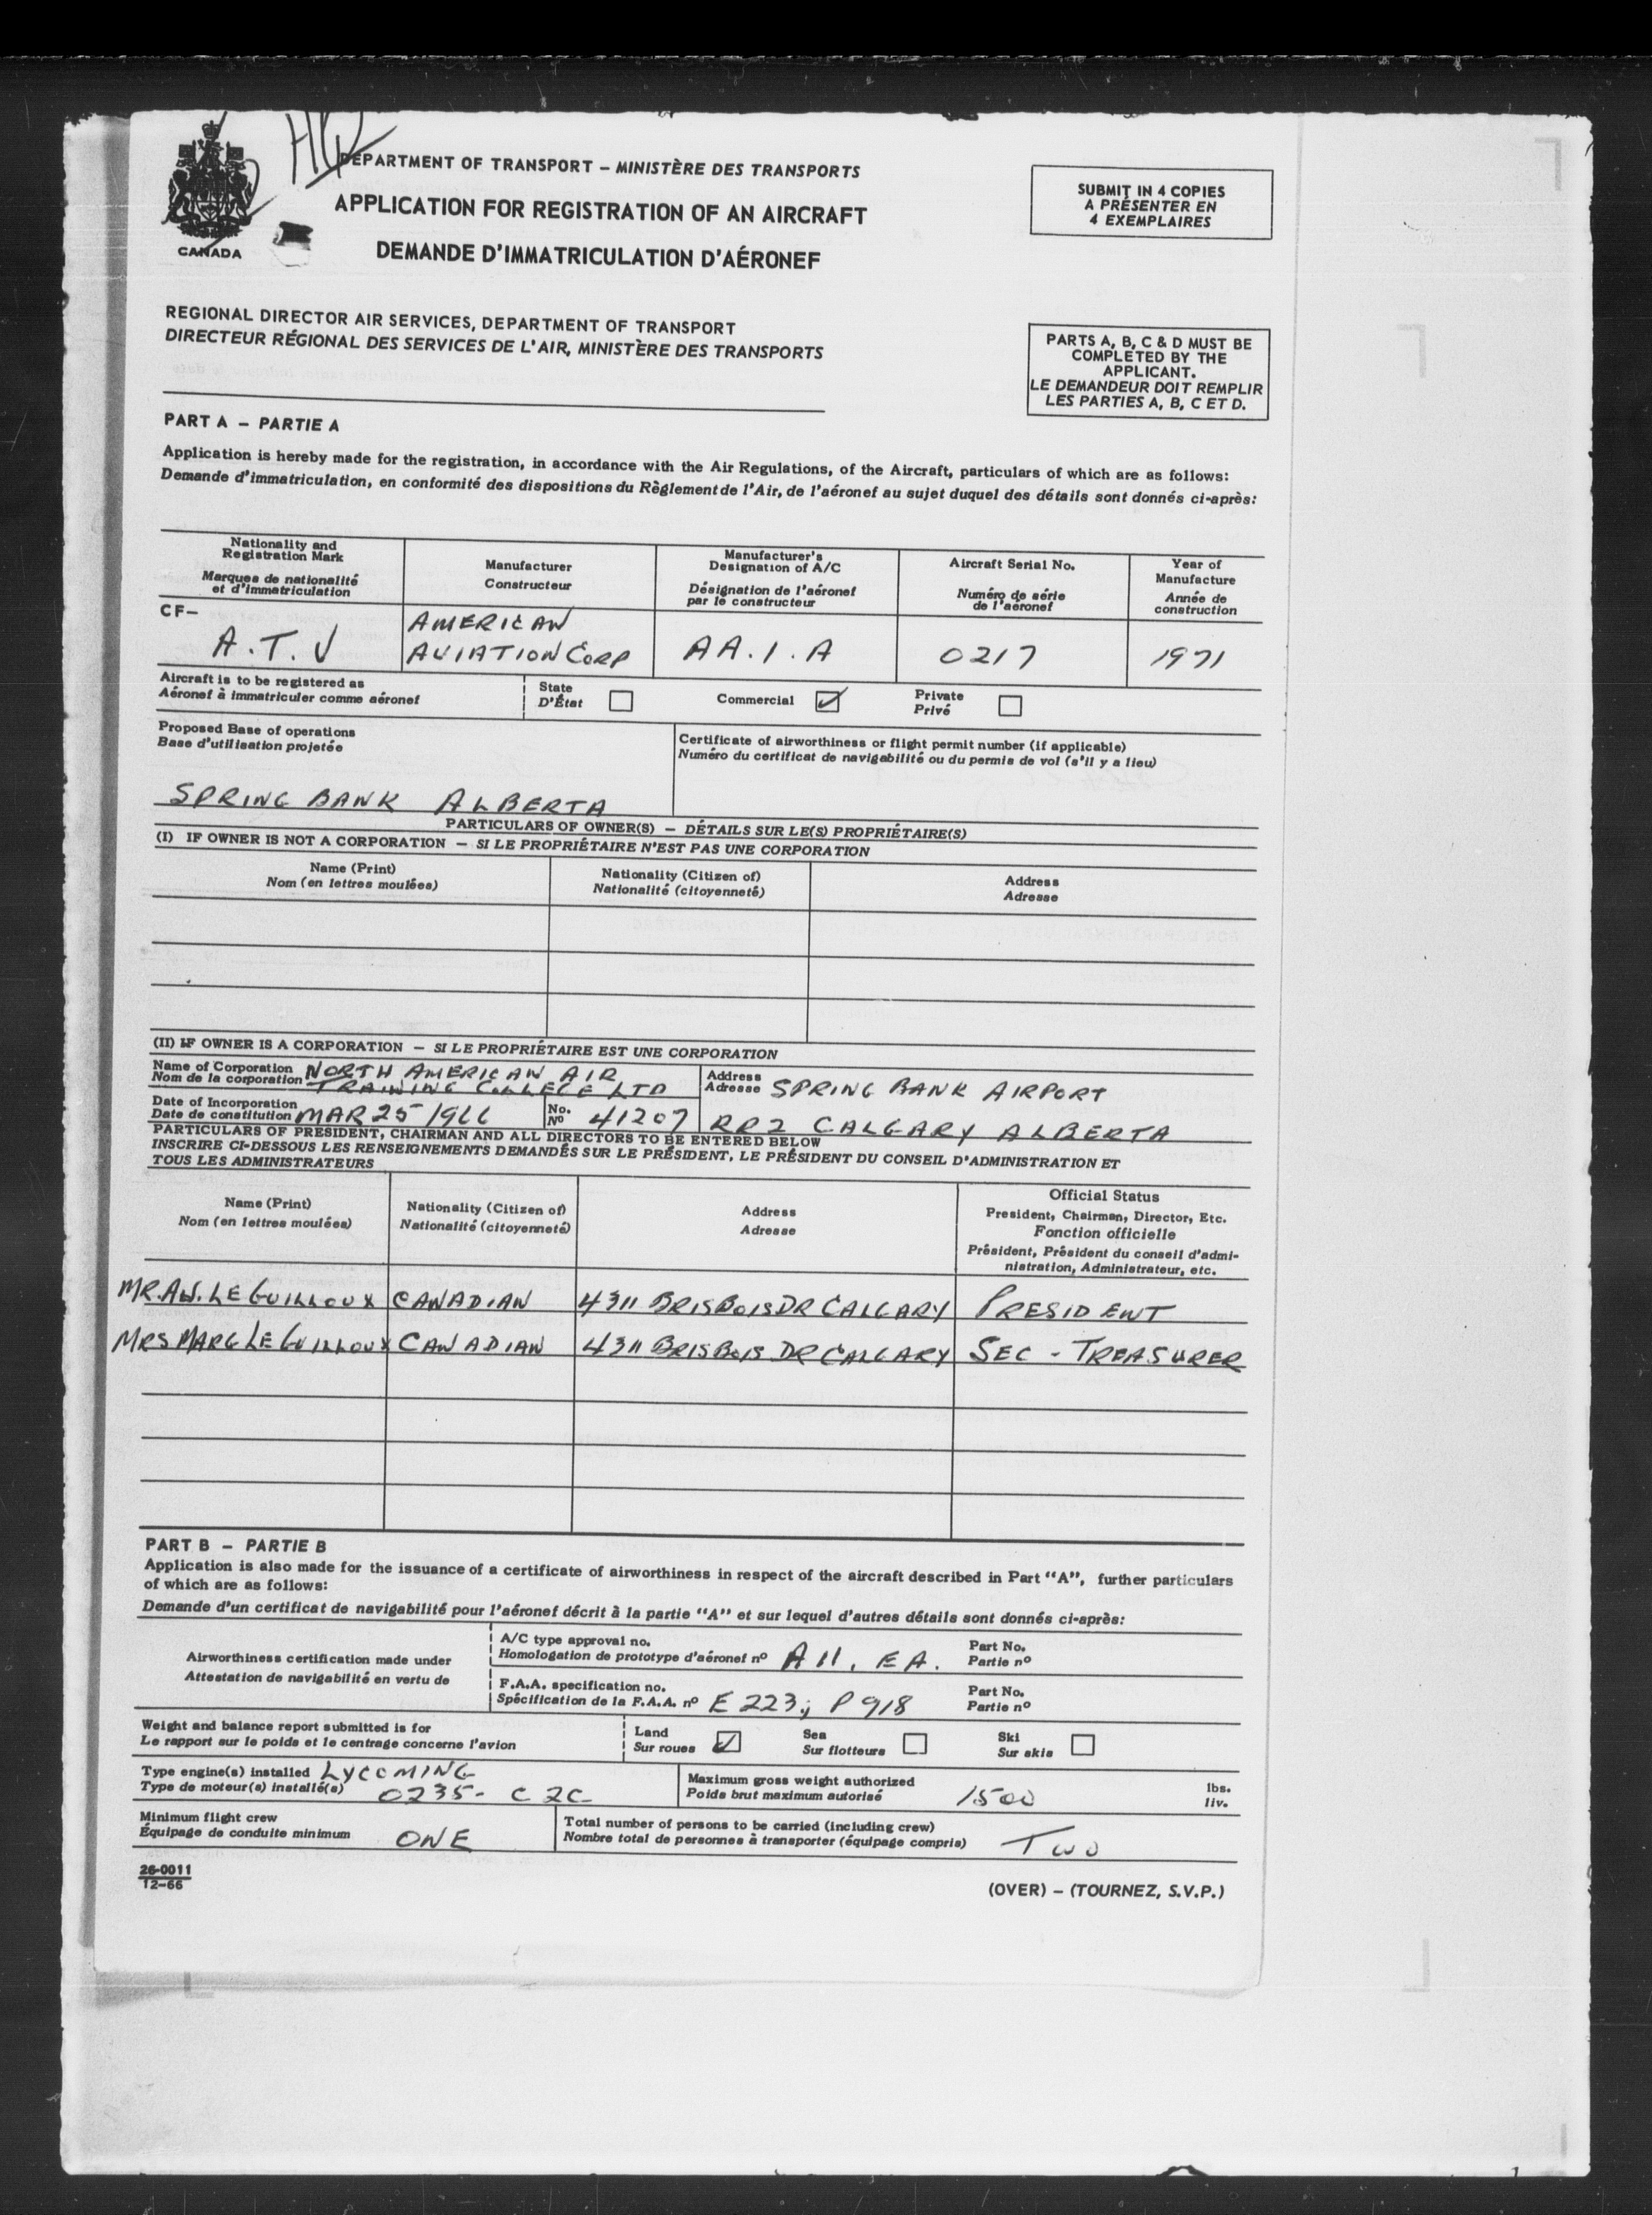 HQ
DEPARTMENT OF TRANSPORT – MINISTÈRE DES TRANSPORTS
APPLICATION FOR REGISTRATION OF AN AIRCRAFT
DEMANDE D'IMMATRICULATION D'AÉRONEF
CANADA
SUBMIT IN 4 COPIES
A PRÉSENTER EN
4 EXEMPLAIRES
REGIONAL DIRECTOR AIR SERVICES, DEPARTMENT OF TRANSPORT
DIRECTEUR RÉGIONAL DES SERVICES DE L'AIR, MINISTÈRE DES TRANSPORTS
PARTS A, B, C & D MUST BE
COMPLETED BY THE
APPLICANT.
LE DEMANDEUR DOIT REMPLIR
LES PARTIES A, B, C ET D.
PART A – PARTIE A
Application is hereby made for the registration, in accordance with the Air Regulations, of the Aircraft, particulars of which are as follows:
Demande d'immatriculation, en conformité des dispositions du Règlement de l'Air, de l'aéronef au sujet duquel des détails sont donnés ci-après:
Nationality and
Registration Mark
Marques de nationalité
et d'immatriculation
Manufacturer
Constructeur
Manufacturer's
Designation of A/C
Désignation de l'aéronef
par le constructeur
Aircraft Serial No.
Numéro de série
de l'aéronef
Year of
Manufacture
Année de
construction
CF–
A.T.V
AMERICAN
AVIATION CORP
AA.1.A
0217
1971
Aircraft is to be registered as
Aéronef à immatriculer comme aéronef
State
D'État
Commercial
Private
Privé
Proposed Base of operations
Base d'utilisation projetée
SPRING BANK ALBERTA
Certificate of airworthiness or flight permit number (if applicable)
Numéro du certificat de navigabilité ou du permis de vol (s'il y a lieu)
PARTICULARS OF OWNER(S) – DÉTAILS SUR LE(S) PROPRIÉTAIRE(S)
(I) IF OWNER IS NOT A CORPORATION – SI LE PROPRIÉTAIRE N'EST PAS UNE CORPORATION
Name (Print)
Nom (en lettres moulées)
Nationality (Citizen of)
Nationalité (citoyenneté)
Address
Adresse
(II) IF OWNER IS A CORPORATION – SI LE PROPRIÉTAIRE EST UNE CORPORATION
Name of Corporation
Nom de la corporation
NORTH AMERICAN AIR
TRAINING COLLEGE LTD
Address
Adresse
SPRING BANK AIRPORT
Date of Incorporation
Date de constitution
MAR 25/1966
No.
Nº
41207
RR2 CALGARY ALBERTA
PARTICULARS OF PRESIDENT, CHAIRMAN AND ALL DIRECTORS TO BE ENTERED BELOW
INSCRIRE CI-DESSOUS LES RENSEIGNEMENTS DEMANDÉS SUR LE PRÉSIDENT, LE PRÉSIDENT DU CONSEIL D'ADMINISTRATION ET
TOUS LES ADMINISTRATEURS
Name (Print)
Nom (en lettres moulées)
Nationality (Citizen of)
Nationalité (citoyenneté)
Address
Adresse
Official Status
President, Chairman, Director, Etc.
Fonction officielle
Président, Président du conseil d'admi-
nistration, Administrateur, etc.
MR. A.W. LE GUILLOUX CANADIAN 4311 BRISBOIS DR CALGARY PRESIDENT
MRS MARG LE GUILLOUX CANADIAN 4311 BRISBOIS DR CALGARY SEC - TREASURER
PART B – PARTIE B
Application is also made for the issuance of a certificate of airworthiness in respect of the aircraft described in Part "A", further particulars
of which are as follows:
Demande d'un certificat de navigabilité pour l'aéronef décrit à la partie "A" et sur lequel d'autres détails sont donnés ci-après:
Airworthiness certification made under
Attestation de navigabilité en vertu de
A/C type approval no.
Homologation de prototype d'aéronef nº A 11. EA.
Part No.
Partie nº
F.A.A. specification no.
Spécification de la F.A.A. nº E 223; P 918
Part No.
Partie nº
Weight and balance report submitted is for
Le rapport sur le poids et le centrage concerne l'avion
Land
Sur roues
Sea
Sur flotteurs
Ski
Sur skis
Type engine(s) installed
Type de moteur(s) installé(s)
LYCOMING
0235- C2C
Maximum gross weight authorized
Poids brut maximum autorisé
1500
lbs.
liv.
Minimum flight crew
Équipage de conduite minimum
ONE
Total number of persons to be carried (including crew)
Nombre total de personnes à transporter (équipage compris)
TWO
26-0011
12-66
(OVER) – (TOURNEZ, S.V.P.)